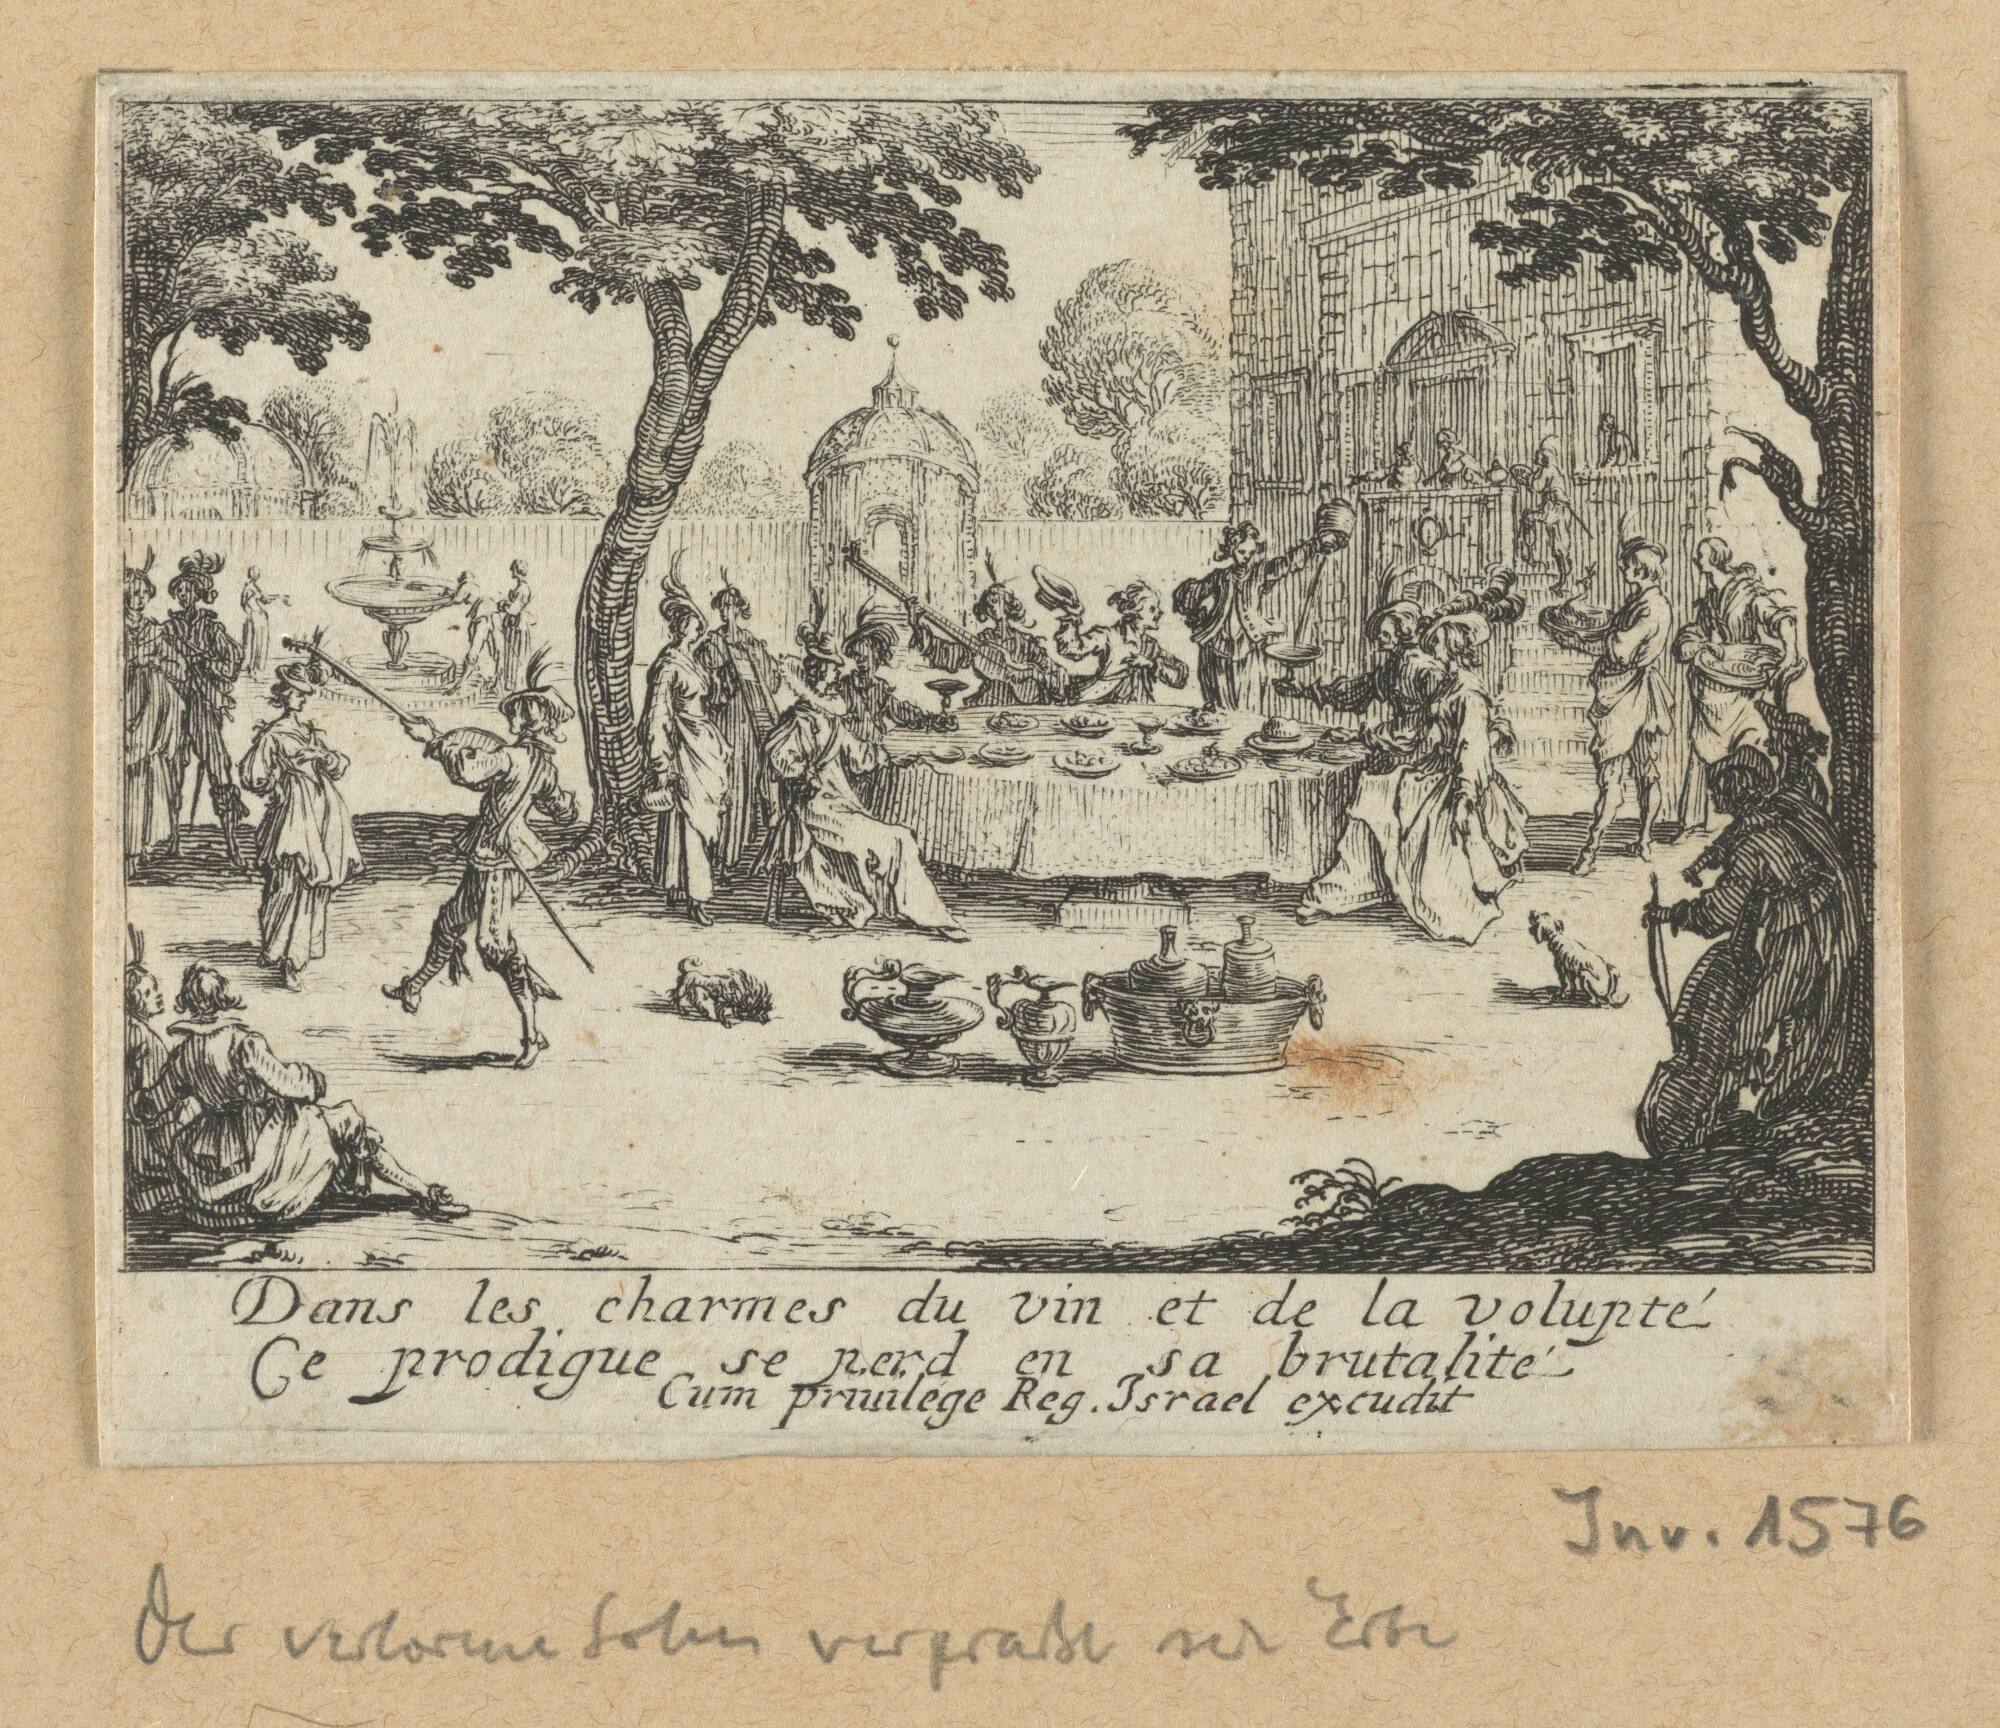 Dans les charmes du vin et de la volupté
Ce prodigue se perd en sa brutalité
Cum priuilege Reg. Israel excudit
Inv. 1576
Der verlorene Sohn verpraßt sein Erbe